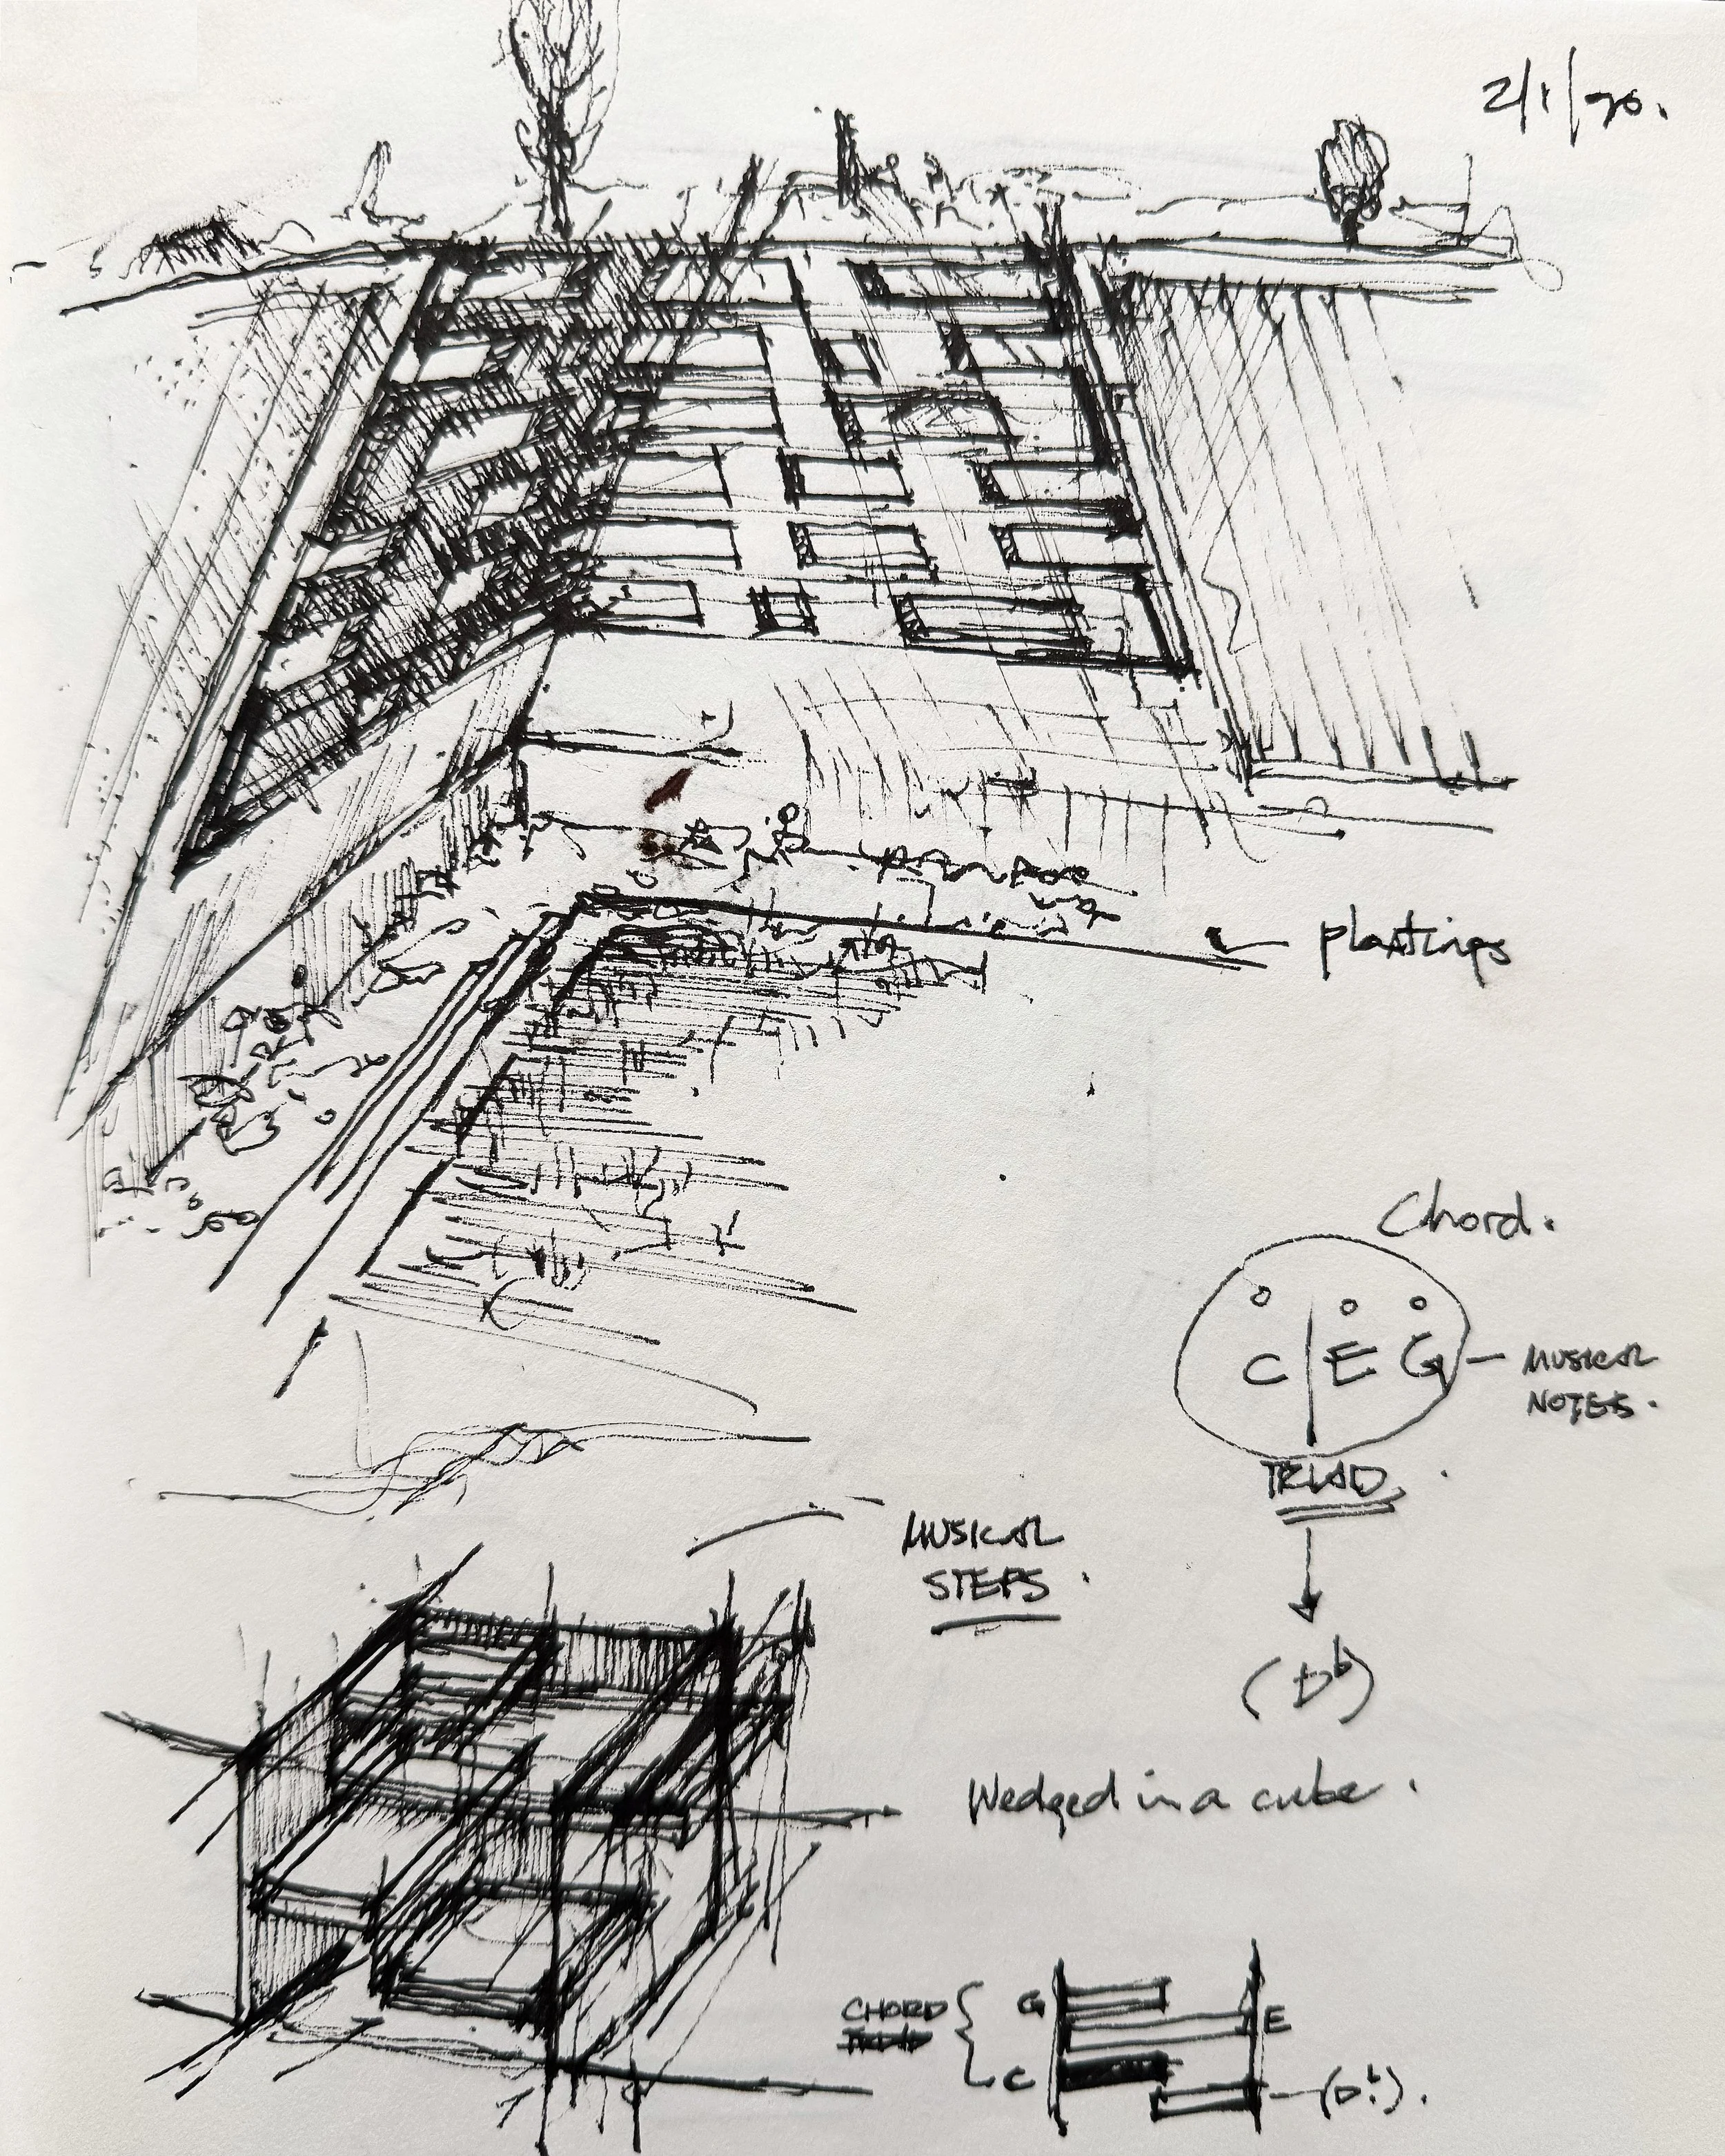 2/1/90.
plantings
Chord.
C | E G
MUSICAL
NOTES.
TRIAD.
(Db)
MUSICAL
STEPS.
Wedged in a cube.
CHORD
G
E
C
(Db!).